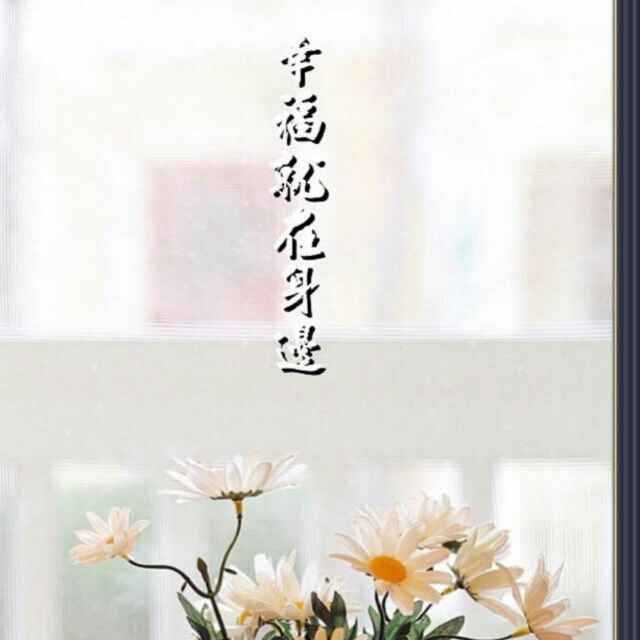 幸福就在身邊